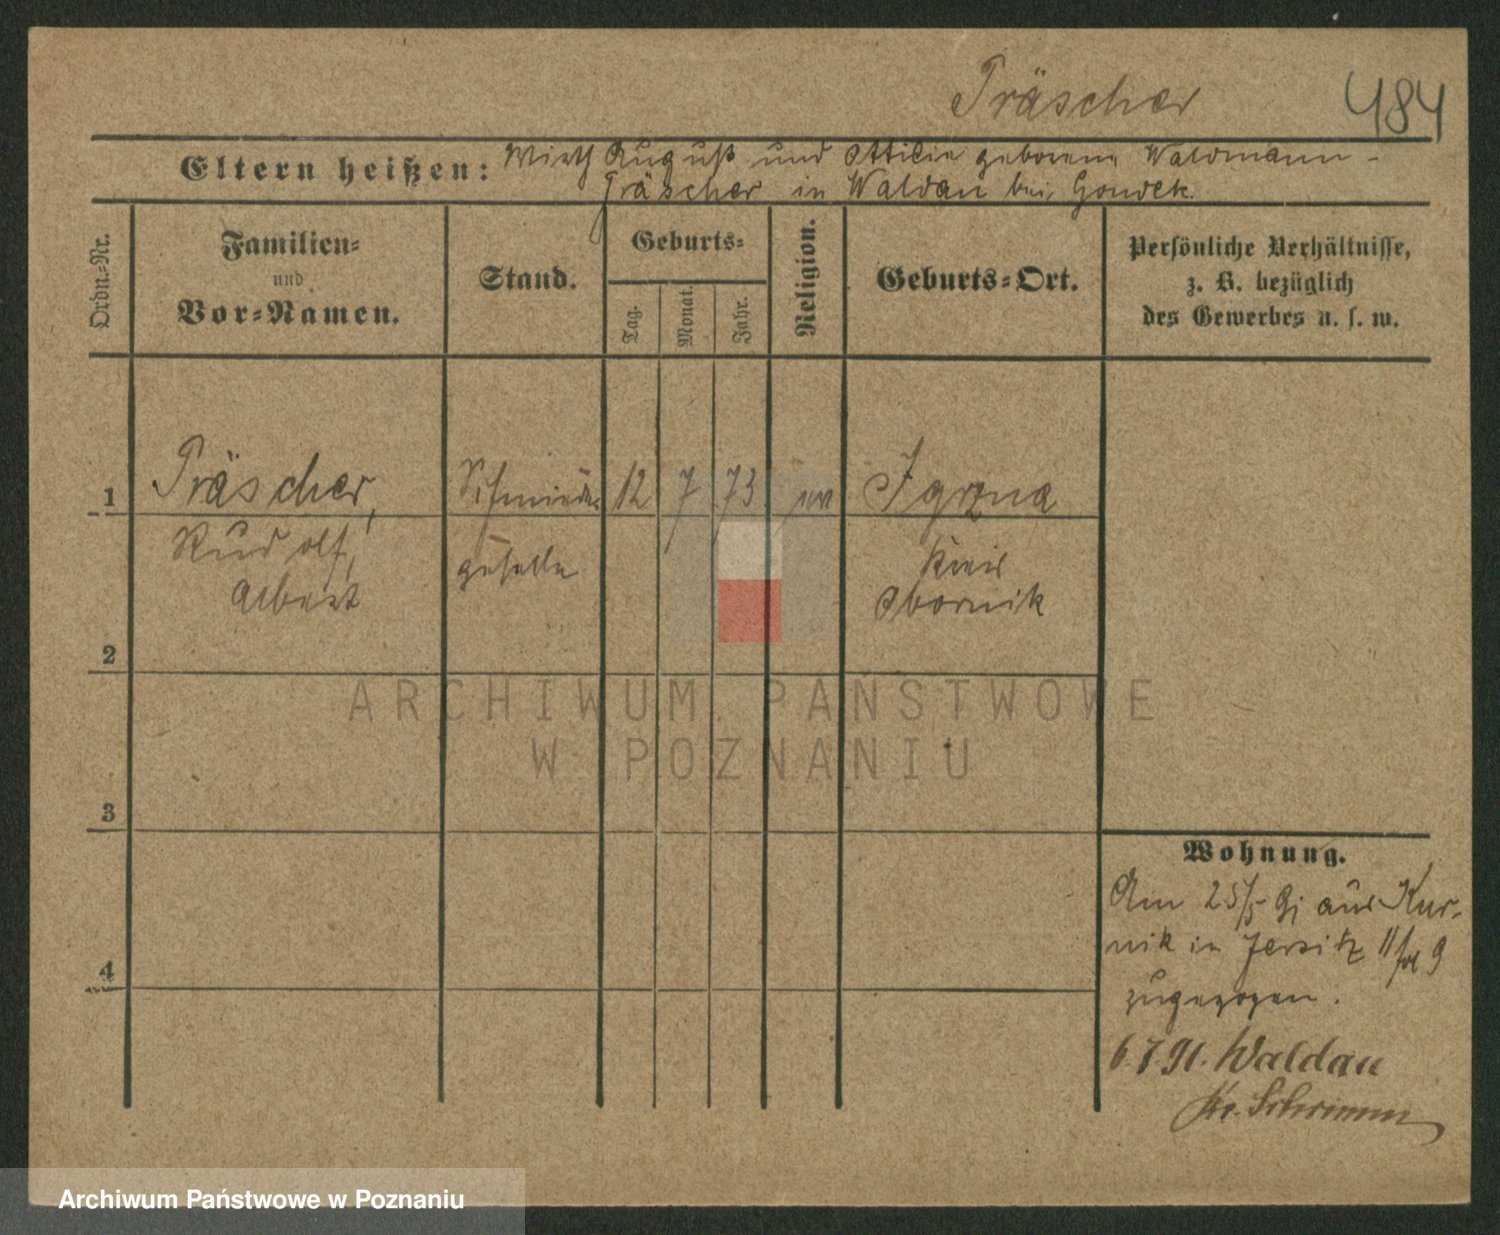 Präscher 484
Eltern heißen: Wirth August und Ottilie geborene Waldmann-
Präscher in Waldau bei Gondek.
Ordn.-Nr.
Familien-
und
Vor-Namen.
Stand.
Geburts-
Tag.
Monat.
Jahr.
Religion.
Geburts-Ort.
Persönliche Verhältnisse,
z. B. bezüglich
des Gewerbes u. s. w.
1 Präscher, Schmiede 12 7 73 ev
Rudolf, geselle Kreis
Albert Obornik
2
3
4
Wohnung.
Am 25/5 91 aus Kur-
nik in Jersitz 9
zugezogen.
6.7.91. Waldau
Kr. Schrimm
ARCHIWUM PAŃSTWOWE
W POZNANIU
Archiwum Państwowe w Poznaniu